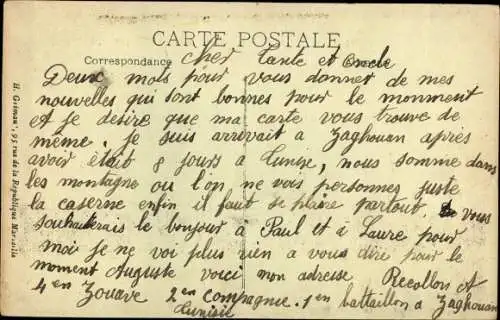 CARTE POSTALE
Correspondance
cher Tante et Oncle
Deux mots pour vous donner de mes
nouvelles qui sont bonnes pour le monment
et je desire que ma carte vous trouve de
même. je suis arrevait a Zaghouan après
avoir était 8 jours a Tunise, nous somme dans
les montagne ou l'on ne vois personnes juste
la caserne enfin il faut se plaire partout. vous
souhaiterais le bonjour à Paul et à Laure pour
moi je ne voi plus rien a vous dire pour le
moment Auguste voici mon adresse Recollon At
4 en Zouave 2 en compagnie. 1 en battaillon a Zaghouan
Tunisie
95 rue de la République Marseille